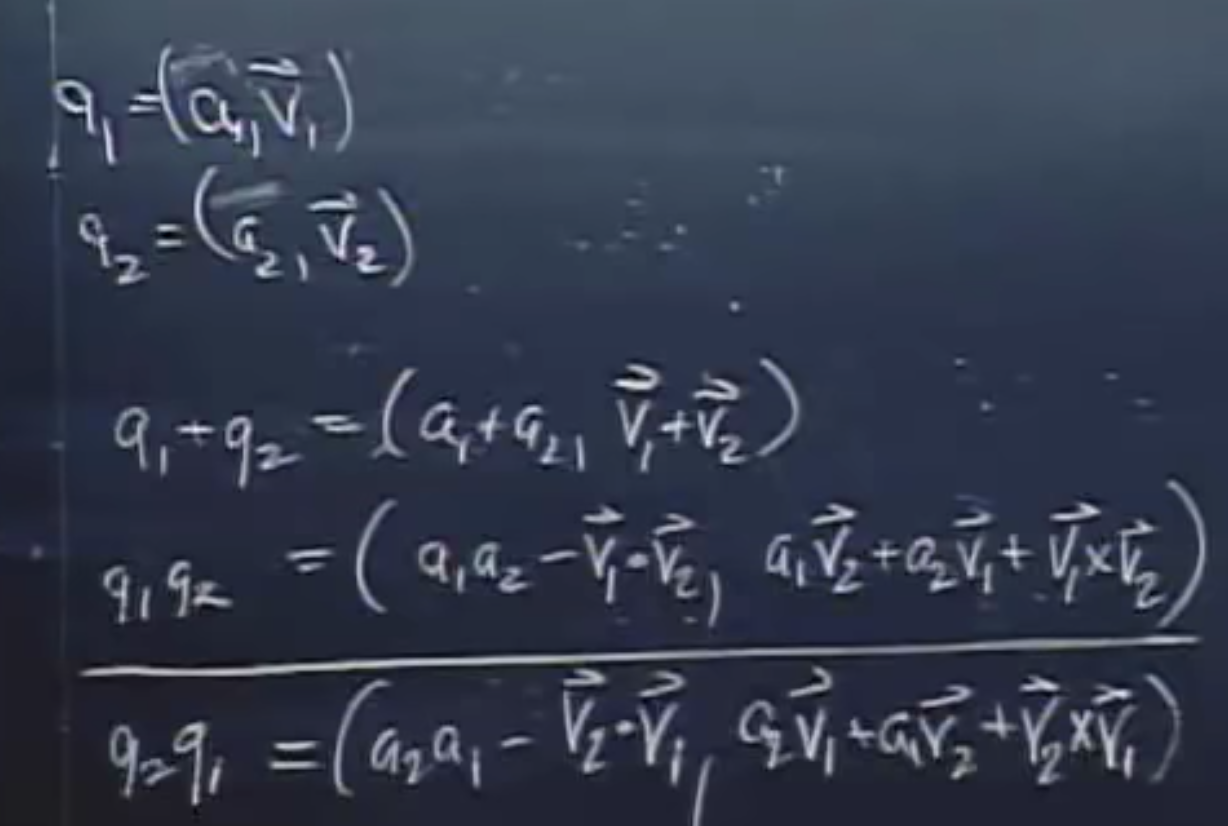 q₁ = (a₁, v⃗₁)
q₂ = (a₂, v⃗₂)
q₁ + q₂ = (a₁ + a₂, v⃗₁ + v⃗₂)
q₁q₂ = (a₁a₂ − v⃗₁ · v⃗₂, a₁v⃗₂ + a₂v⃗₁ + v⃗₁ × v⃗₂)
q₂q₁ = (a₂a₁ − v⃗₂ · v⃗₁, a₂v⃗₁ + a₁v⃗₂ + v⃗₂ × v⃗₁)